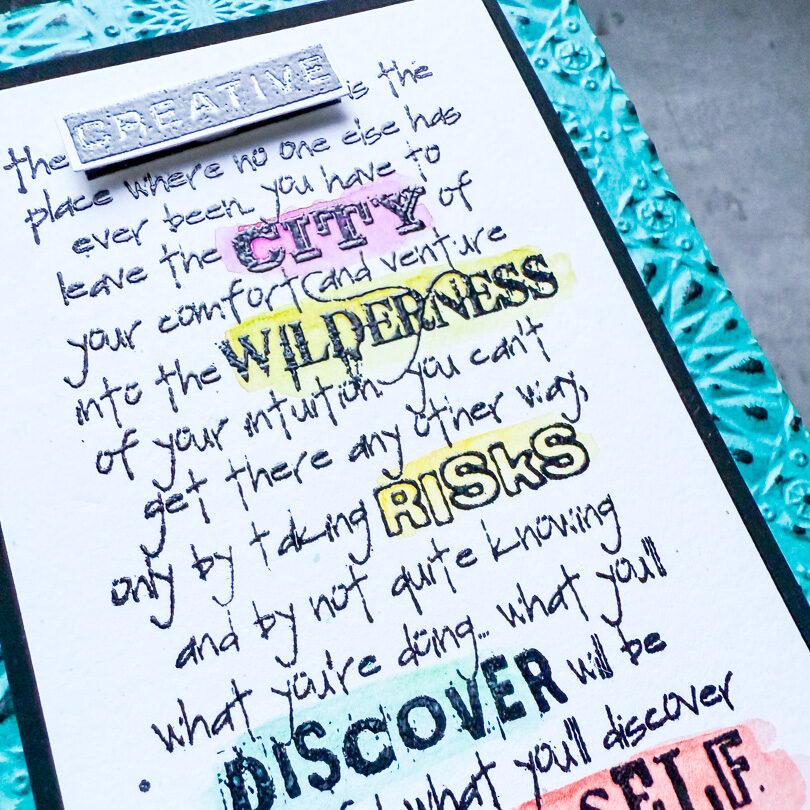 the CREATIVE is the
place where no one else has
ever been. you have to
leave the CITY of
your comfort and venture
into the WILDERNESS
of your intuition. you can't
get there any other way,
only by taking RISKS
and by not quite knowing
what you're doing... what you'll
DISCOVER will be
what you'll discover
SELF.